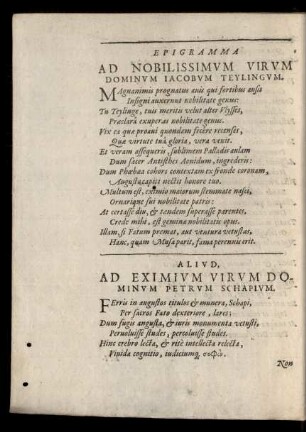 EPIGRAMMA
AD NOBILISSIMVM VIRVM
DOMINVM IACOBVM TEYLINGVM.
MAgnanimis prognatus avis qui fortibus ausis
Insigni auxerunt nobilitate genus:
Tu Teylinge, tuis meritis velut alter Vlysses,
Præclarâ exuperas nobilitate genus.
Vix ea quæ proavi quondam fecêre recenses,
Quæ virtute tuâ gloria, vera venit.
Et veram assequeris, sublimem Palladis aulam
Dum sacer Antisthes Aonidum, ingrederis:
Dum Phœbea cohors contextam ex fronde coronam,
Augusta capiti nectit honore tuo.
Multum est, eximio maiorum stemmate nasci,
Ornarique sui nobilitate patris:
At certasse diu, & tandem superasse parentes,
Crede mihi, est geminæ nobilitatis opus.
Illam, si Fatum premat, aut ventura vetustas,
Hanc, quam Musa parit, fama perennis erit.
ALIVD,
AD EXIMIVM VIRVM DO-
MINVM PETRVM SCHAPIVM.
FErris in angustos titulos & munera, Schapi,
Per sacros Fato dexteriore, lares:
Dum fugis angusta, & iuris monumenta vetusti,
Pervoluisse studes, percoluisse studes.
Hinc crebro lecta, & ritè intellecta relecta,
Vivida cognitio, iudiciumq;
Non